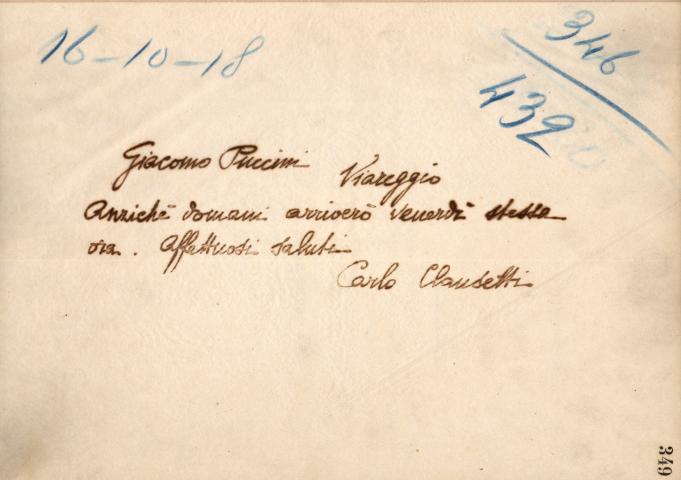 16-10-18
346
432
Giacomo Puccini Viareggio
Anzichè domani arriverò venerdì stessa
ora. Affettuosi saluti
Carlo Clausetti
349